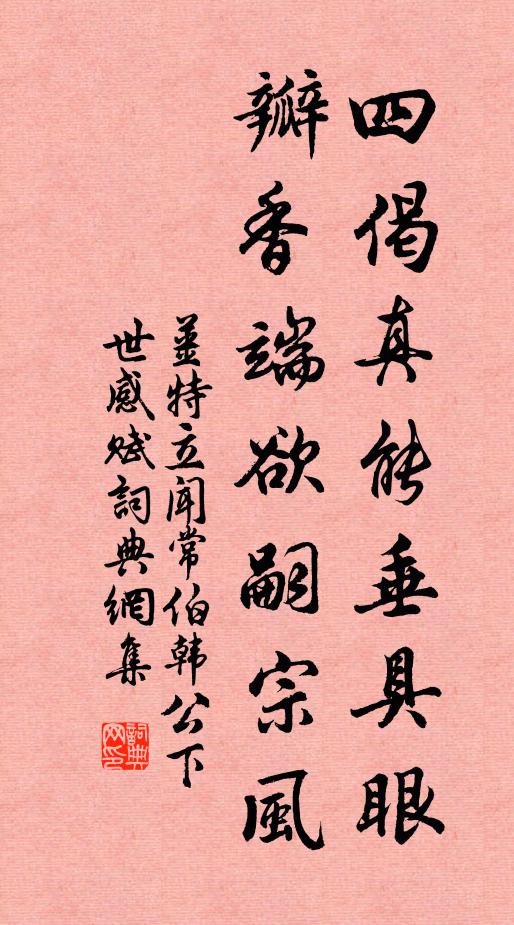 四偈真能垂具眼
瓣香端欲嗣宗風
姜特立闻常伯韩公下
世感赋詞典網集
詞典
网印